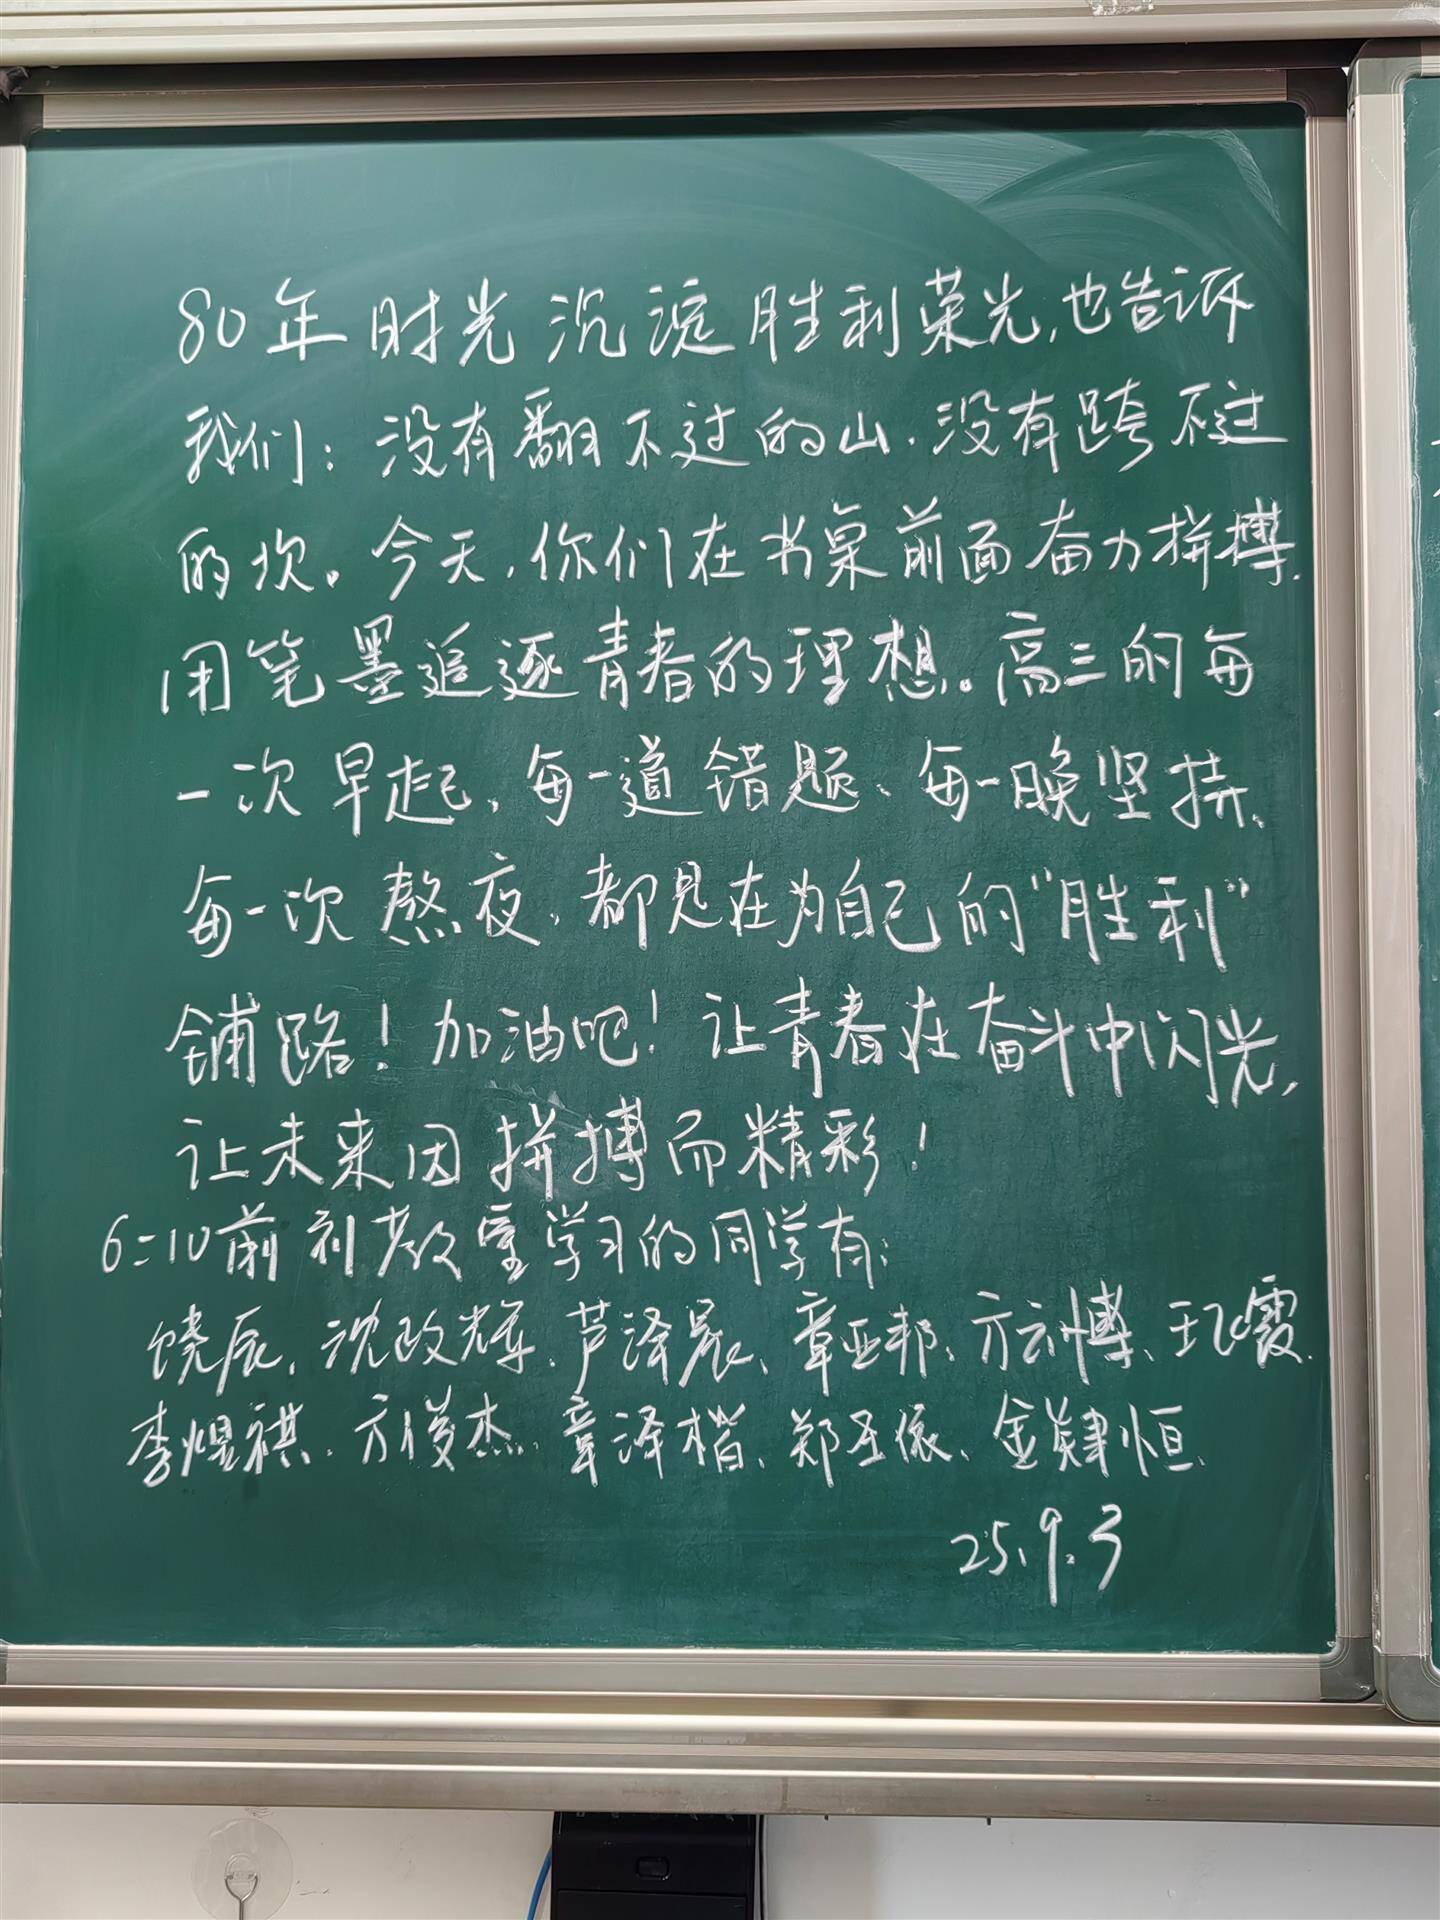 80年时光沉淀胜利荣光,也告诉
我们：没有翻不过的山.没有跨不过
的坎。今天,你们在书桌前面奋力拼搏.
用笔墨追逐青春的理想。高三的每
一次早起、每一道错题、每一晚坚持、
每一次熬夜、都是在为自己的"胜利"
铺路！加油吧！让青春在奋斗中闪光,
让未来因拼搏而精彩！
6:10前到教室学习的同学有:
饶辰、沈政辉、芦泽晨、章亚邦、方云博、王飞霞.
李煜祺、方俊杰、章泽楷、郑圣依、金肄恒.
25.9.3